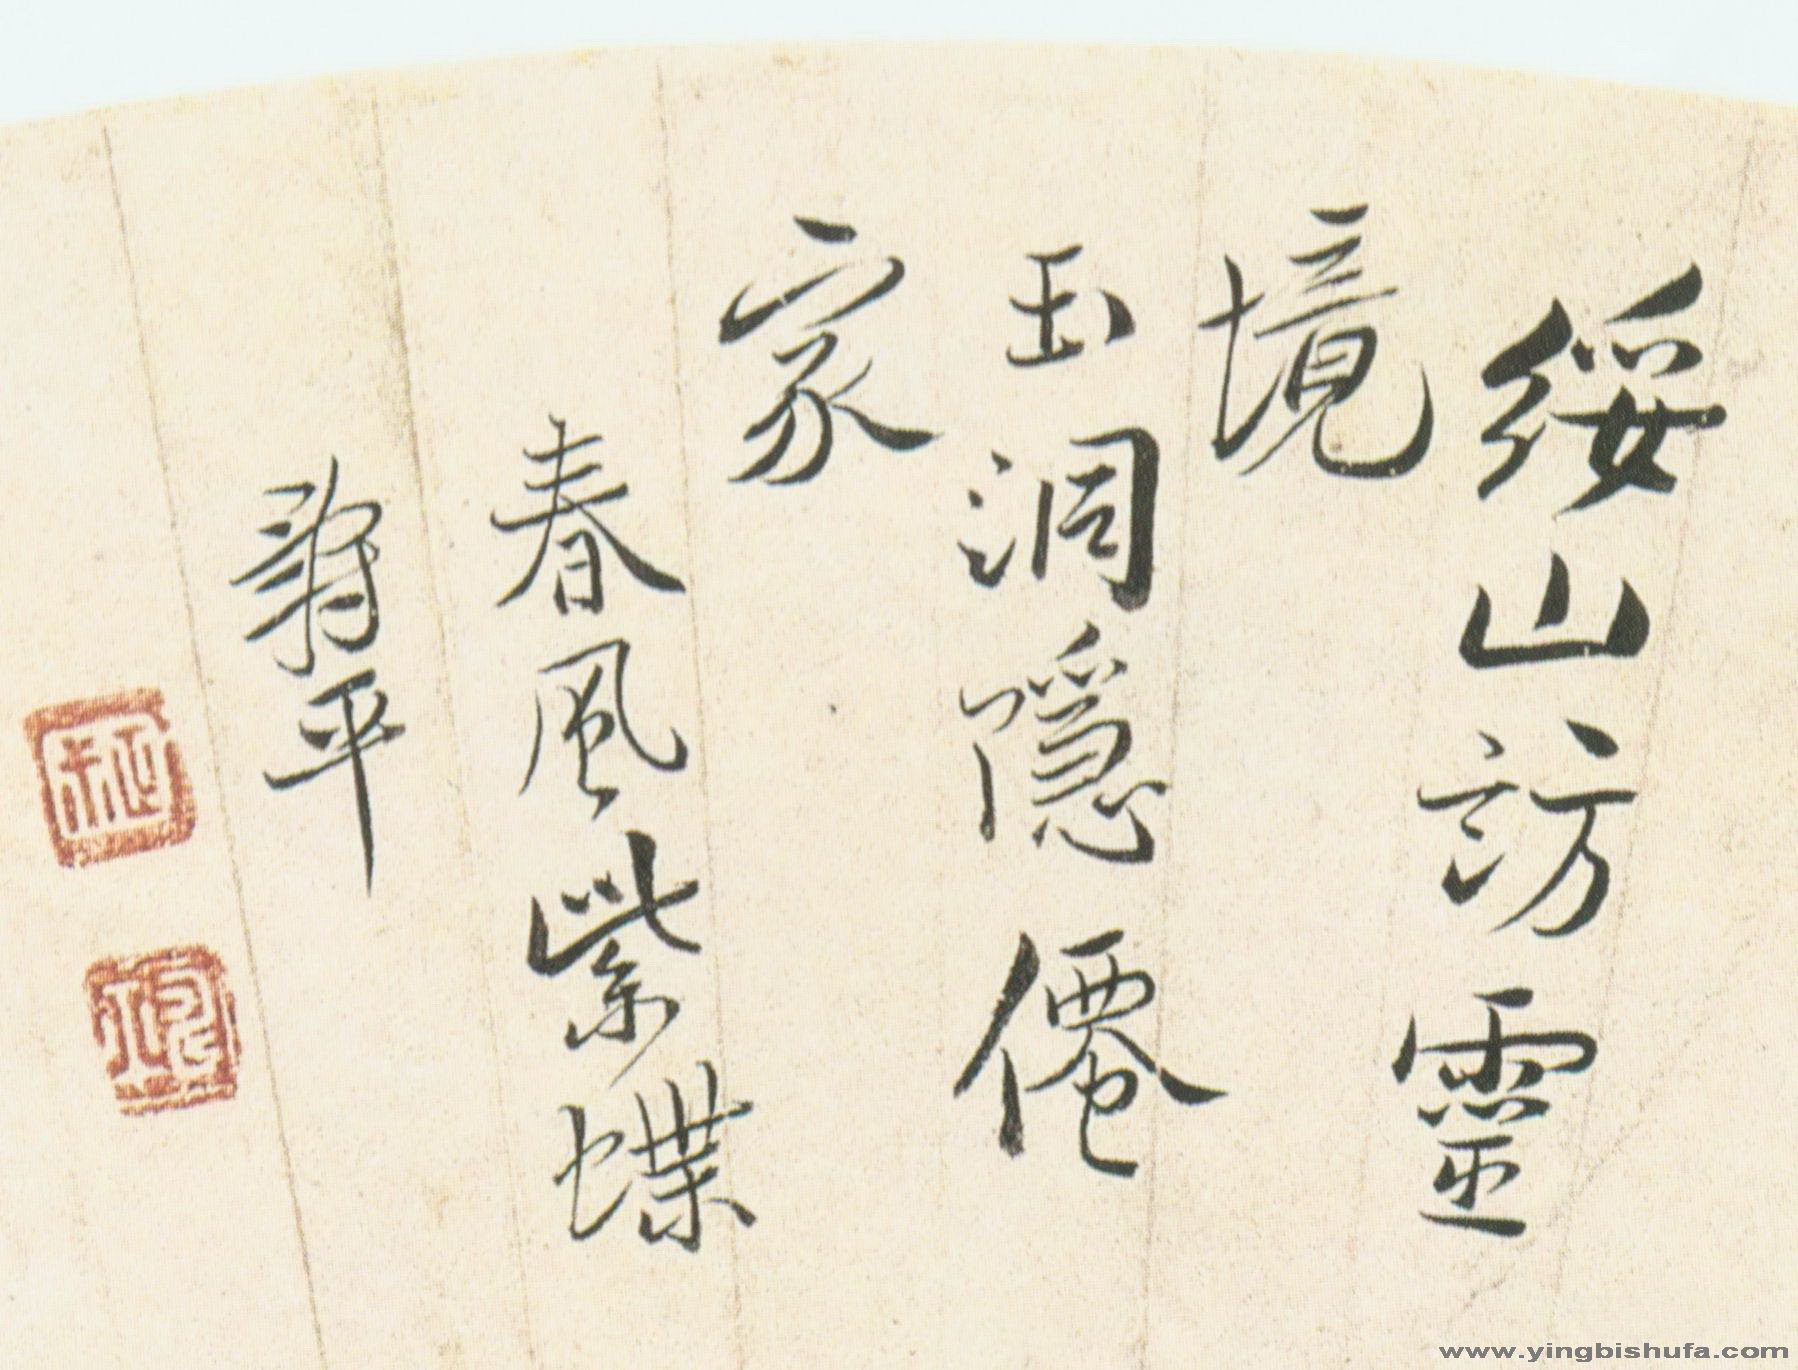 綏山訪靈
境
玉洞隱僊
家
春風紫蝶
平
www.yingbishufa.com